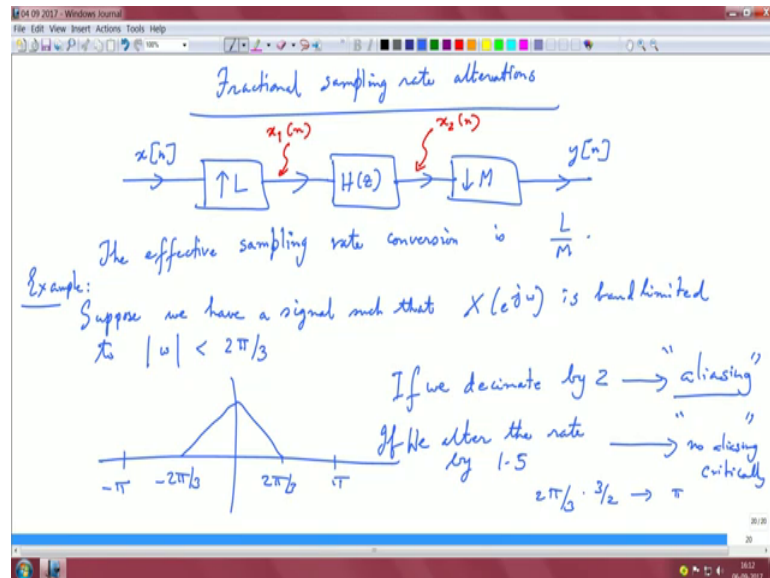 04 09 2017 - Windows Journal
File Edit View Insert Actions Tools Help
100%
B I
Fractional sampling rate alterations
x[n] ↑L x₁(n) H(z) x₂(n) ↓M y[n]
The effective sampling rate conversion is L/M.
Example:
Suppose we have a signal such that X(e^jω) is bandlimited
to |ω| < 2π/3
If we decimate by 2 → "aliasing"
If We alter the rate by 1.5 → "no aliasing" critically
2π/3 · 3/2 → π
-π -2π/3 2π/3 π
20/20
20
16:12
06-09-2017